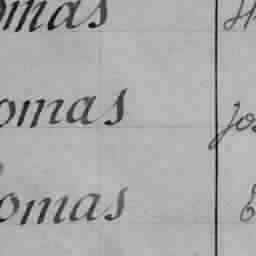 omas
omas Jos
omas